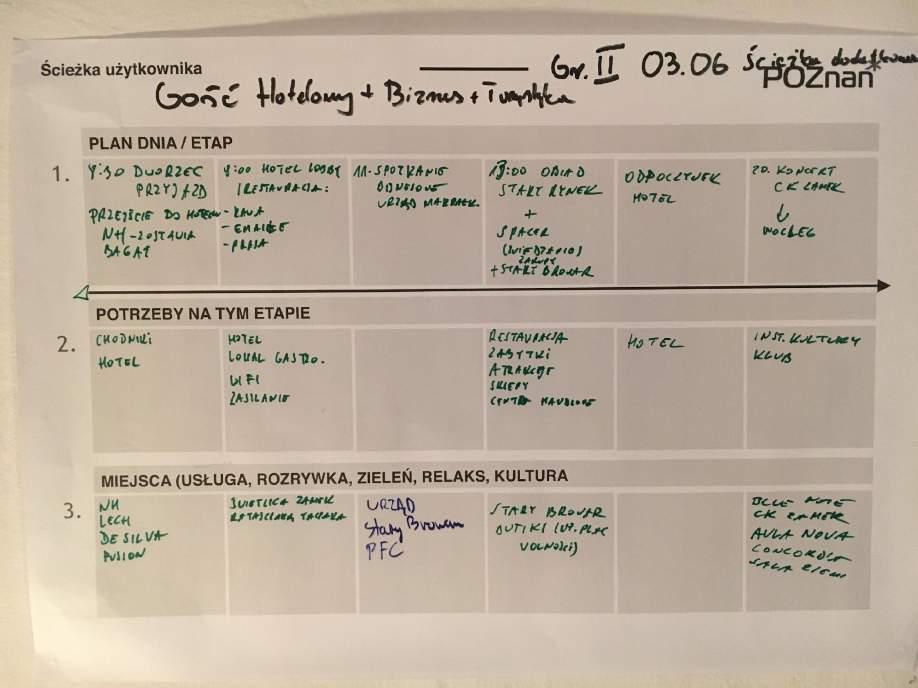 Ścieżka użytkownika
Gr. II 03.06 Ścieżka dodatkowa
POZnan*
Gość Hotelowy + Biznes + Turystyka
PLAN DNIA / ETAP
1.
9:30 DWORZEC
PRZYJAZD
PRZEJŚCIE DO HOTELU
NH - ZOSTAWIA
BAGAŻ
9:00 HOTEL LOBBY
/RESTAURACJA:
- KAWA
- EMAILE
- PRASA
11. SPOTKANIE
URZĄD MARSZAŁK.
13:00 OBIAD
START RYNEK
+
SPACER
(ZWIEDZANIE)
ZAKUPY
+ START BROWAR
ODPOCZYNEK
HOTEL
20. KONCERT
CK ZAMEK
↓
NOCLEG
POTRZEBY NA TYM ETAPIE
2.
CHODNIKI
HOTEL
HOTEL
LOKAL GASTRO.
WIFI
ZASILANIE
RESTAURACJA
ZABYTKI
ATRAKCJE
SKLEPY
CENTRA HANDLOWE
HOTEL
INST. KULTURY
KLUB
MIEJSCA (USŁUGA, ROZRYWKA, ZIELEŃ, RELAKS, KULTURA
3.
NH
LECH
DE SILVA
FUSION
ŚWIETLICA ZAMEK
RATAJCZAKA TACZAKA
URZĄD
Stary Browar
PFC
STARY BROWAR
BUTIKI (UL. PLAC
WOLNOŚCI)
BLUE NOTE
CK ZAMEK
AULA NOVA
CONCORDIA
SALA ZIEMI